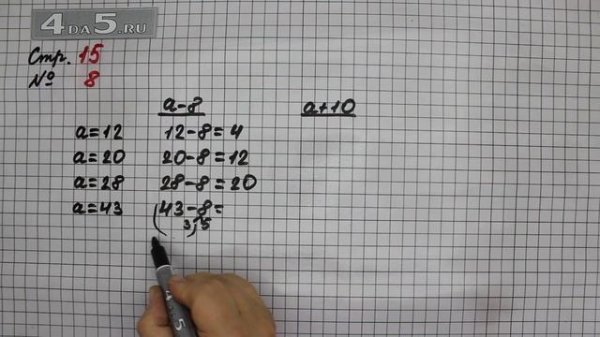 4DA5.RU
Стр. 15
№ 8
a-8 a+10
a=12 12-8=4
a=20 20-8=12
a=28 28-8=20
a=43 43-8=
3 5